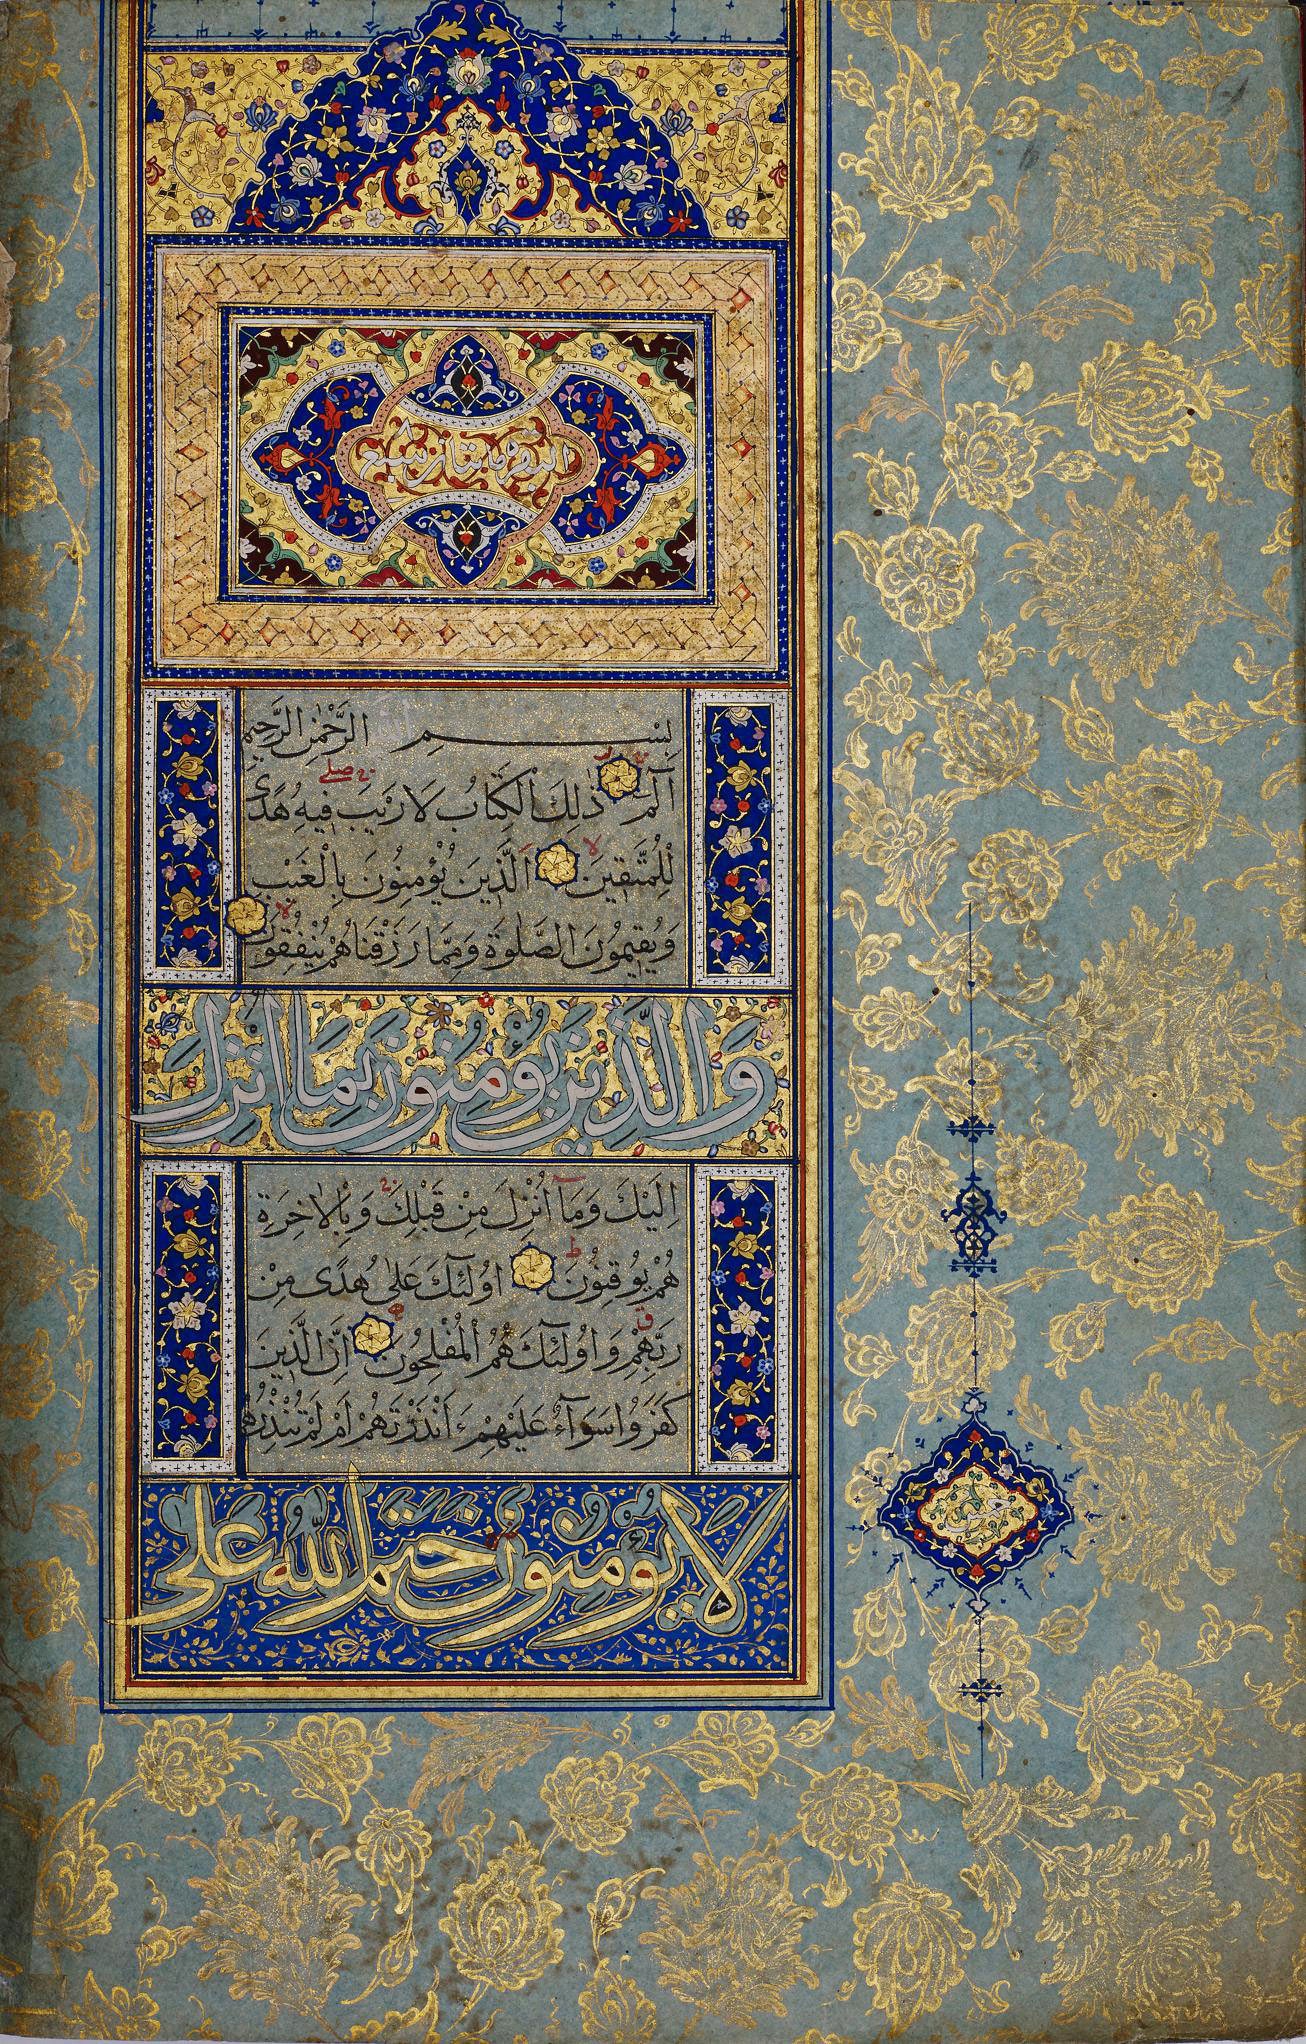 البقره
بِسْمِ الله الرَّحْمٰنِ الرَّحِيمِ
الٓمٓ ذٰلِكَ الْكِتَابُ لَا رَيْبَ فِيهِ هُدًى
لِلْمُتَّقِينَ الَّذِينَ يُؤْمِنُونَ بِالْغَيْبِ
وَيُقِيمُونَ الصَّلٰوةَ وَمِمَّا رَزَقْنَاهُمْ يُنْفِقُونَ
وَالَّذِينَ يُؤْمِنُونَ بِمَا اُنْزِلَ
اِلَيْكَ وَمَٓا اُنْزِلَ مِنْ قَبْلِكَ وَبِالْاٰخِرَةِ
هُمْ يُوقِنُونَ اُولٰٓئِكَ عَلٰى هُدًى مِنْ
رَبِّهِمْ وَاُولٰٓئِكَ هُمُ الْمُفْلِحُونَ اِنَّ الَّذِينَ
كَفَرُوا سَوَٓاءٌ عَلَيْهِمْ ءَاَنْذَرْتَهُمْ اَمْ لَمْ تُنْذِرْهُمْ
لَا يُؤْمِنُونَ خَتَمَ اللّٰهُ عَلٰى